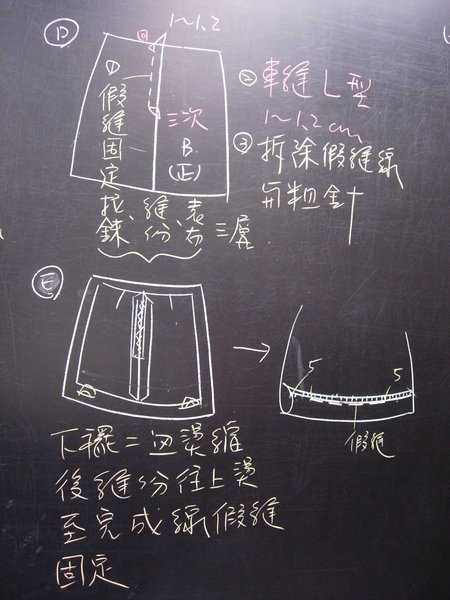 D
1~1.2
② 車縫L型
1~1.2cm
③ 拆除假縫線
与粗針
① 假縫固定
三次
B.
(正)
拉鍊、縫份、表布三層
E
5 5
假縫
下襬二 燙縮
後縫份往上燙
至完成線假縫
固定